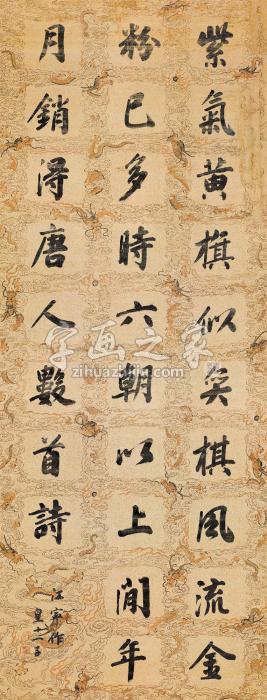 紫氣黃旗似奕棋風流金
粉已多時六朝以上閒年
月銷得唐人數首詩
江寧作
皇十一子
字画之家
zihuazhijia.com